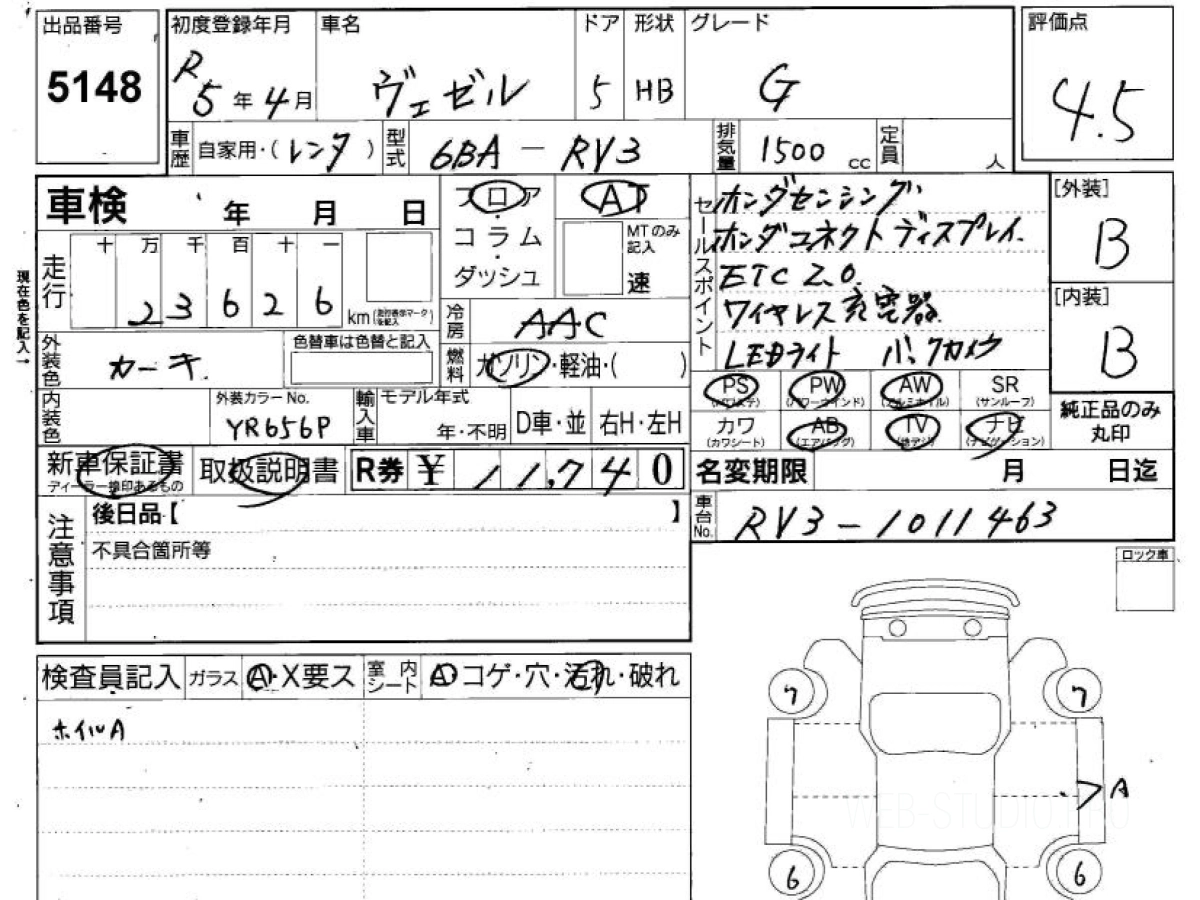 出品番号
5148
初度登録年月
R5年4月
車名
ヴェゼル
ドア
5
形状
HB
グレード
G
評価点
4.5
車歴
自家用・(レンタ)
型式
6BA-RV3
排気量
1500 cc
定員
人
車検
年 月 日
フロア
コラム
ダッシュ
AT
MTのみ記入
速
セールスポイント
ホンダセンシング
ホンダコネクトディスプレイ.
ETC 2.0.
ワイヤレス充電器.
LEDライト バックカメラ
[外装]
B
[内装]
B
現在色を記入→
走行
十 万 千 百 十 一
2 3 6 2 6
km
冷房
AAC
燃料
ガソリン・軽油・( )
外装色
カーキ.
色替車は色替と記入
内装色
外装カラーNo.
YR656P
輸入車
モデル年式
年・不明
D車・並
右H・左H
PS
(パワステ)
PW
(パワーウインド)
AW
(アルミホイル)
SR
(サンルーフ)
カワ
(カワシート)
AB
(エアバッグ)
TV
(地デジ)
ナビ
(ナビゲーション)
純正品のみ
丸印
新車保証書
ディーラー捺印あるもの
取扱説明書
R券 ¥ 11,740
名変期限
月 日迄
注意事項
後日品【 】
不具合箇所等
車台No.
RV3-1011463
ロック車
検査員記入
ガラス
A・X要ス
室内シート
A・コゲ・穴・汚れ・破れ
ホイルA
7
7
A
6
6
WEB-STUDIO.PRO